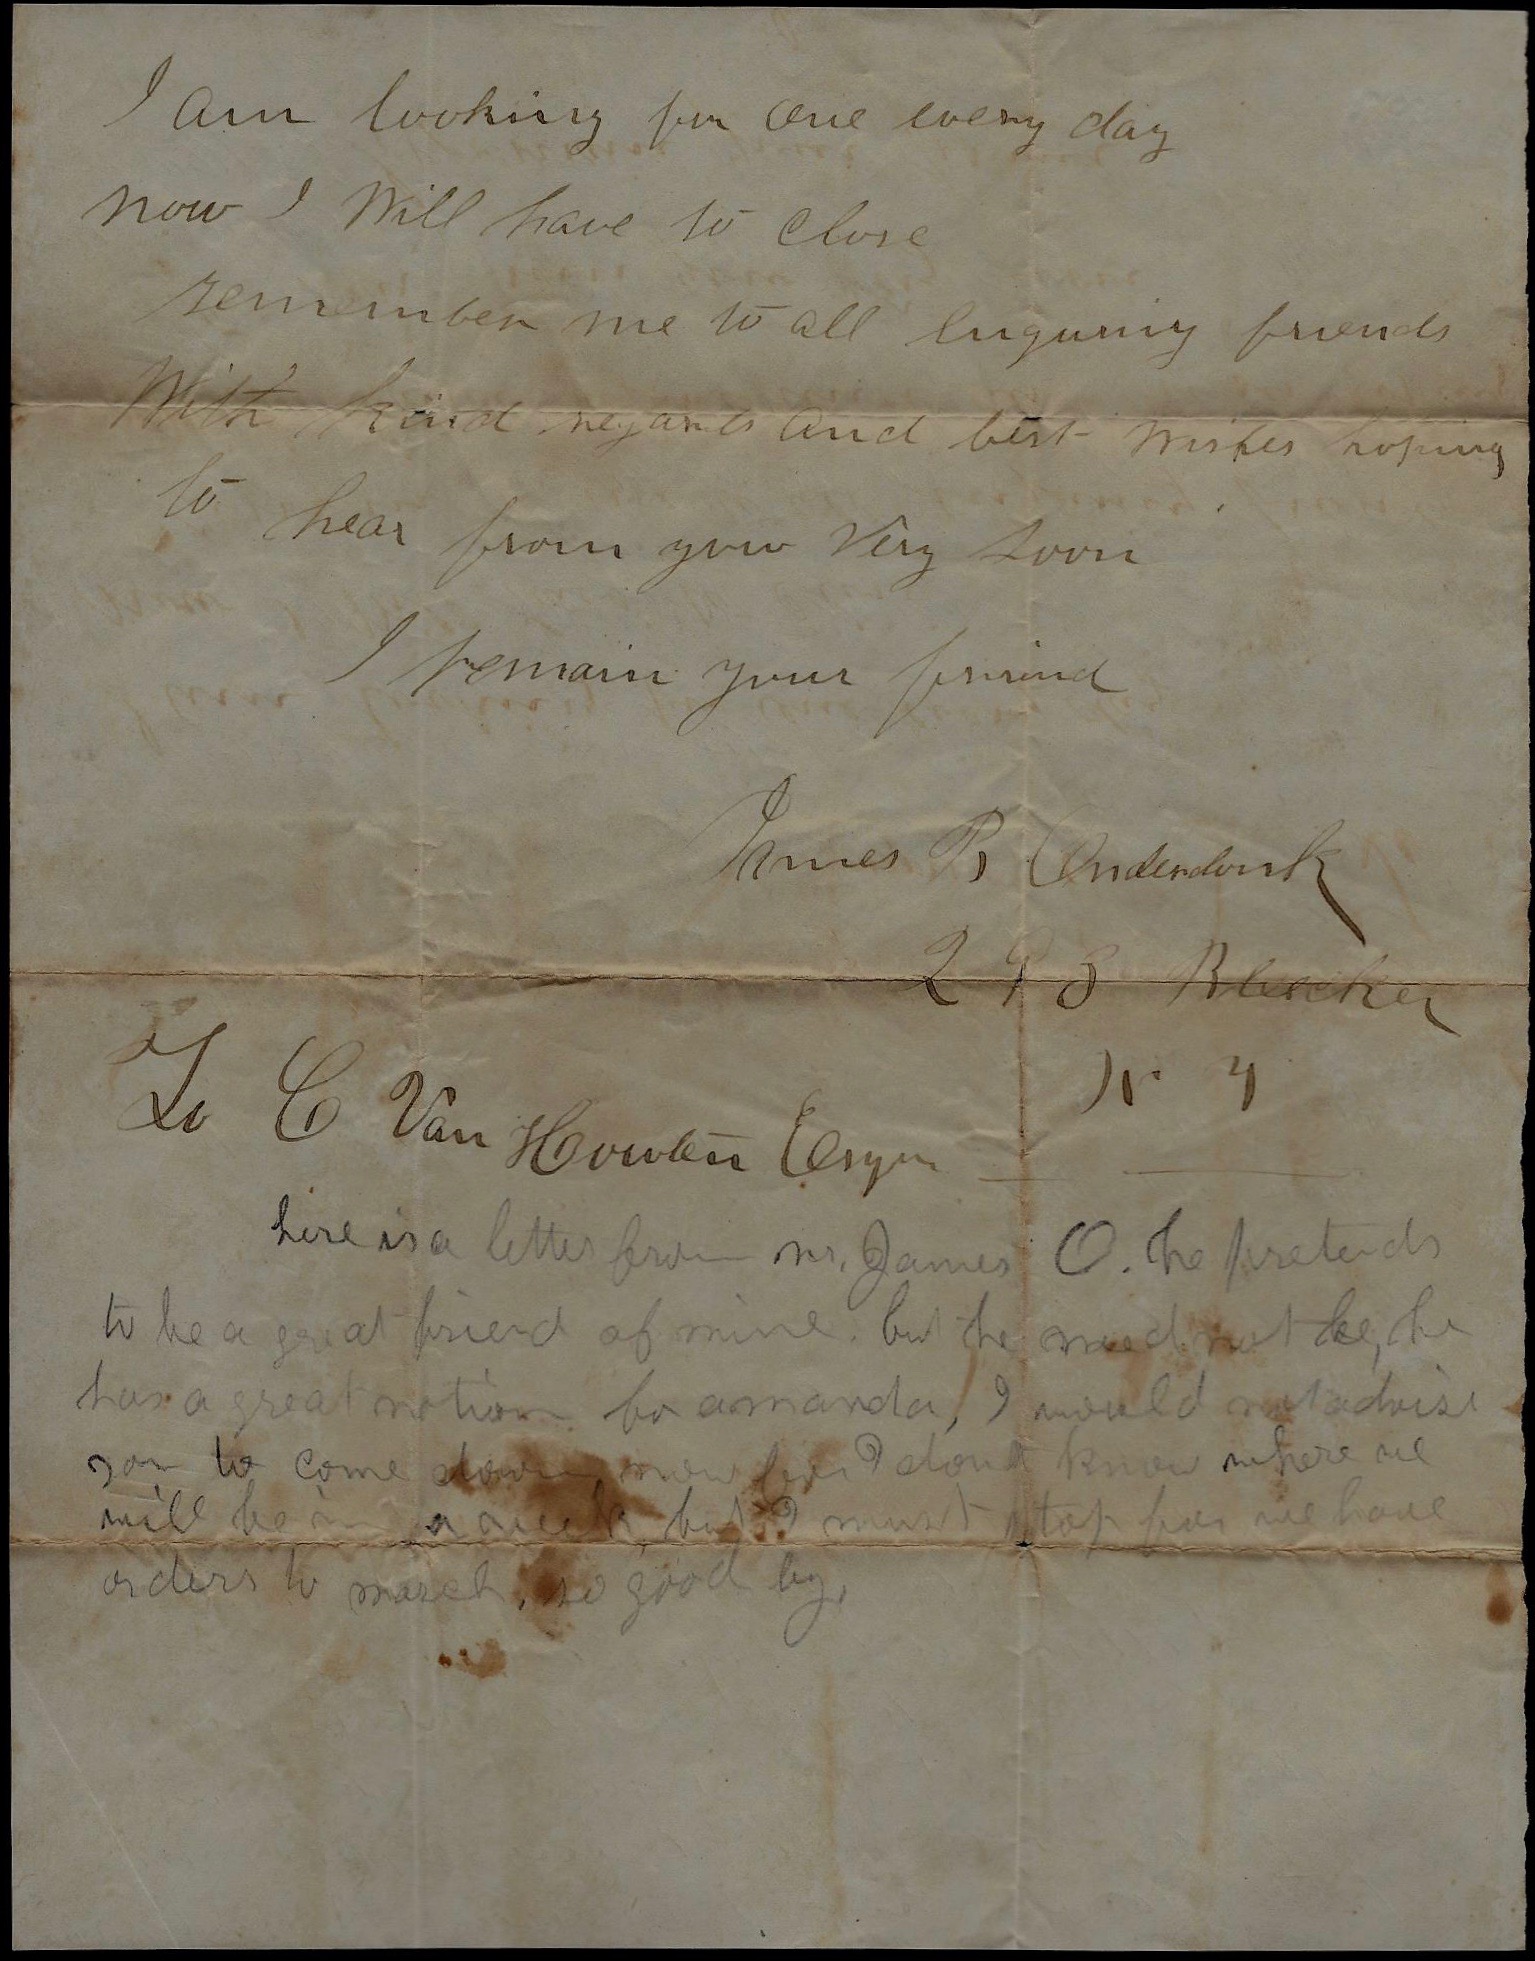 I am looking for one every day
now I Will have to Close
remember me to all Enquiring friends
With kind regards and best wishes hoping
to hear from you Very soon
I remain your friend
James B Onderdonk
298 Bleecker
N Y
To C Van Houten Esqr
here is a letter from mr. James O. he pretends
to be a great friend of mine. but he need not be, he
has a great notion for amanda, I would not advise
you to come down now for I dont know where we
will be in a week, but I must stop for we have
orders to march, so good by,